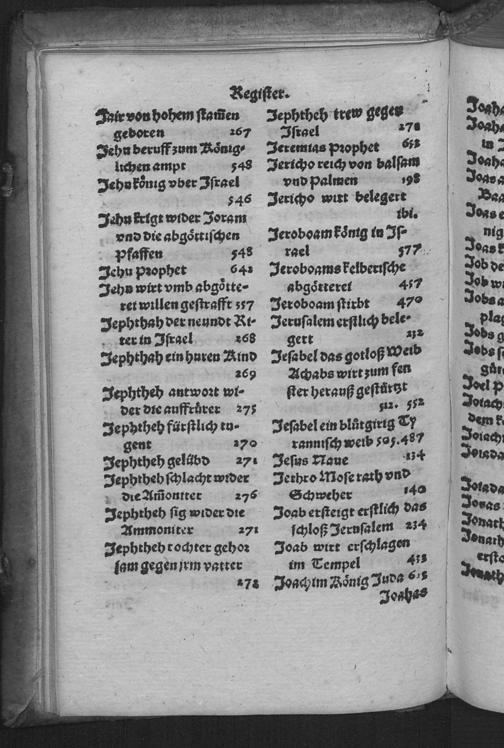 Register.
Jair von hohem stam̃en
geboren 267
Jehu beruff zum König-
lichen ampt 548
Jehu könig vber Israel
546
Jehu krigt wider Joram
vnd die abgöttischen
Pfaffen 548
Jehu Prophet 642
Jehu wirt vmb abgötte-
rei willen gestrafft 557
Jephthah der neundt Ri-
ter in Israel 268
Jephthah ein huren Kind
269
Jephtheh antwort wi-
der die auffrürer 275
Jephtheh fürstlich tu-
gent 270
Jephtheh gelübd 271
Jephtheh schlacht wider
die Am̃oniter 276
Jephtheh sig wider die
Ammoniter 271
Jephtheh tochter gehor
sam gegen jrm vatter
272
Jephtheh trew gegen
Israel 271
Jeremias Prophet 652
Jericho reich von balsam
vnd Palmen 198
Jericho wirt belegert
ibi.
Jeroboam könig in Is-
rael 577
Jeroboams kelberische
abgötterei 457
Jeroboam stirbt 470
Jerusalem erstlich bele-
gert 232
Jesabel das gotloß Weib
Achabs wirt zum fen
ster herauß gestürtzt
512. 552
Jesabel ein blütgirig Ty
rannisch weib 505.487
Jesus Naue 134
Jethro Mose rath vnd
Schweher 140
Joab ersteigt erstlich das
schloß Jerusalem 234
Joab wirt erschlagen
im Tempel 433
Joachim König Juda 613
Joahas